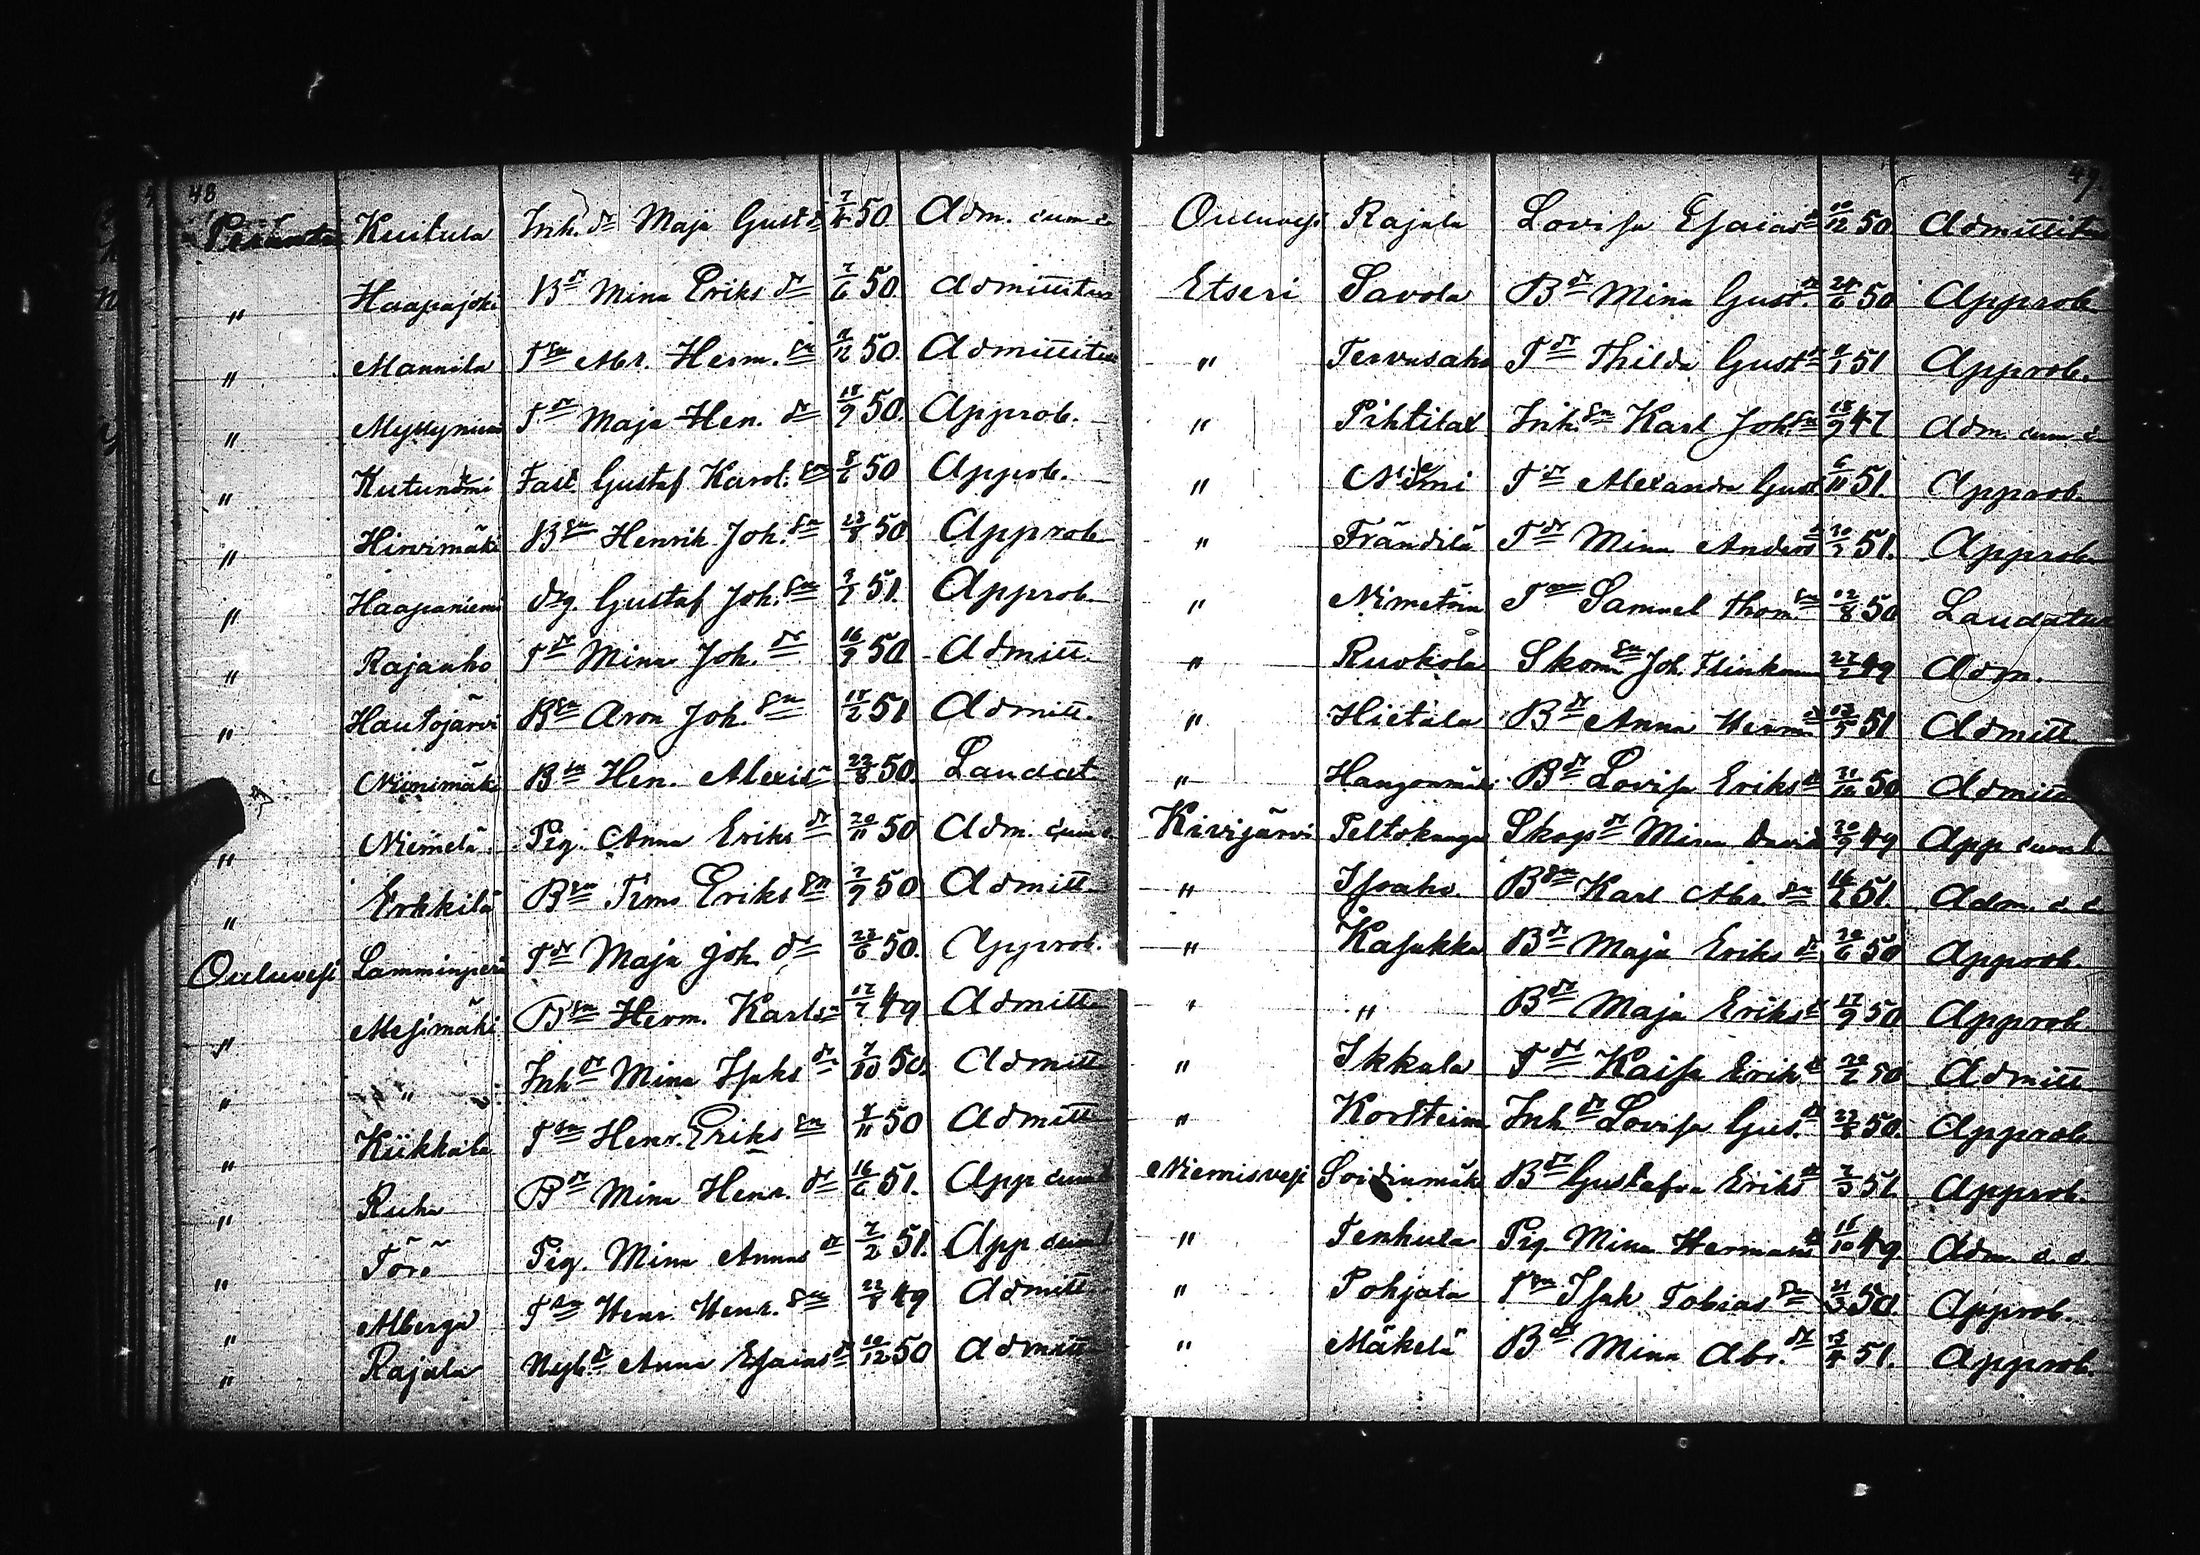 48
Peranta Kuitula Inh. dr Maja Gust dr 7/4 50 Adm. cum d
" Haapajoki B dr Mina Eriks dr 7/6 50 Admittitur
" Mannila T sn Abr. Herm. sn 50. Admittitur
" Myllyniemi T dr Maja Hen. dr 18/9 50. Approb.
" Kutuniemi Gustaf Karol. sn 8/6 50 Approb.
" Hirvimäki B sn Henrik Joh. sn 23/8 50 Approb
" Haapaniemi drg. Gustaf Joh. sn 51. Approb.
" Rajaaho T dr Mina Joh. dr 16/9 50 Admitt.
" Hautojärvi B sn Aron Joh. sn 51 Admitt.
" Niinimäki B sn Hen. Alexis 22/8 50. Laudat
" Niemelä Pig. Anna Eriks dr 20/11 50 Adm. cum d
" Erkkilä B sn Eriks sn 7/9 50 Admitt
Ouluvesi Lamminperä T dr Maja Joh. dr 22/6 50. Approb.
" Mesimäki B sn Herm. Karls 12/7 49 Admitt
" " Inh dr Mina Isaks dr 7/10 50. Admitt
" Kiikkala T sn Henr. Eriks sn 50 Admitt
" Ruha B dr Mina Henr. dr 16/6 51. App cum l
" Törö Pig. Mina dr 7/2 51. App cum l
" Alberga T sn Henr. Henr. sn 22/8 49 Admitt.
" Rajala Nyb. dr Anna Esaias dr 10/12 50 Admitt
49.
Ouluvesi Rajala Lovisa Esaias dr 10/12 50. Admittitur
Etseri Savola B dr Mina Gust. dr 24/6 50 Approb.
" Tervasaho T dr Thilda Gust dr 51 Approb.
" Inh. sn Karl Joh. sn 18/9 47 Adm. cum d
" Niemi T dr Alexandra Gust 51. Approb
" Frändilä T dr Mina Anders 51. Approb.
" T sn Samuel Thom. sn 12/8 50 Laudatur
" Ruokola Joh. Flinkman 49 Adm.
" Hietala B dr Anna Herm 51 Admitt
" B dr Lovisa Eriks dr 21/10 50 Admitt
Kivijärvi Peltokangas dr Mina David 20/9 49 App cum l
" Isoaho B sn Karl Abr. sn 51. Adm. c. d
" Kasukka B dr Maja Eriks dr 50 Approb.
" " B dr Maja Eriks dr 17/9 50 Approb
" Ikkala T dr Kaisa Erik dr 20/2 50 Admitt
" Inh dr Lovisa Gus. dr 22/8 50. Approb
Niemisvesi Soidinmäki B dr Gustafva Eriks dr 7/3 51. Approb.
" Tenhula Pig. Mina Hermans dr 18/10 49 Adm. c. d.
" Pohjala sn Isak Tobias sn 21/3 50 Approb.
" Mäkelä B dr Mina Abr. dr 51. Approb.